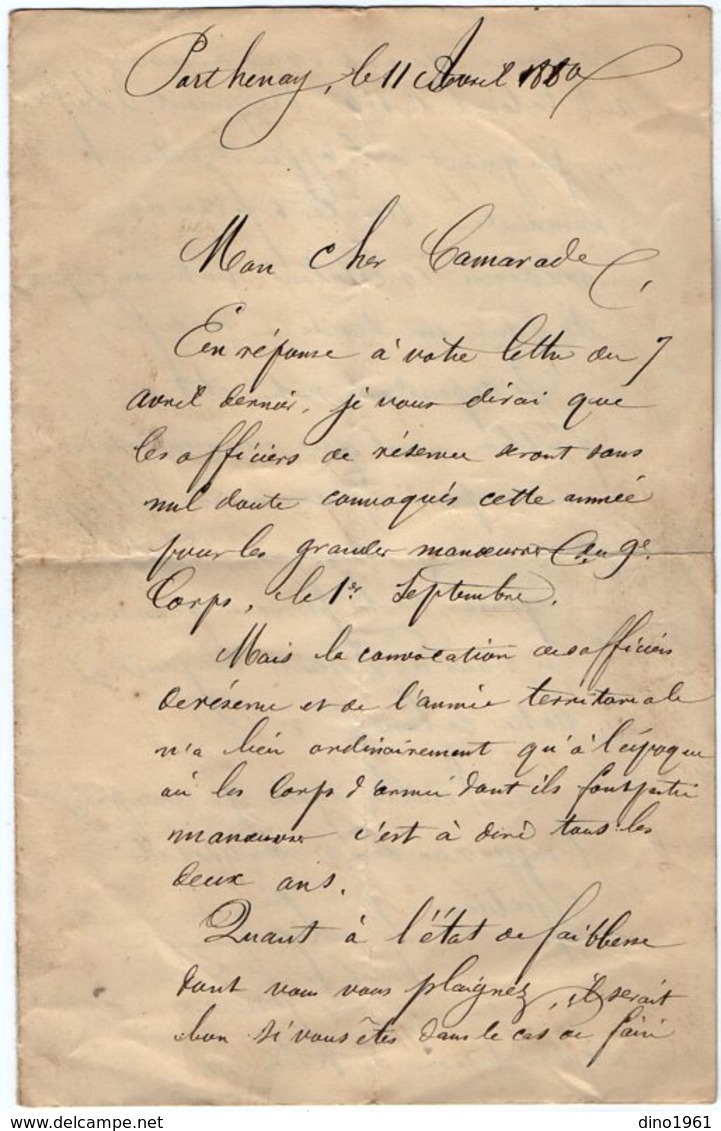 Parthenay, le 11 Avril 1880
Mon cher Camarade,
En réponse à votre lettre du 7
avril dernier, je vous dirai que
les officiers de réserve seront sans
nul doute convoqués cette année
pour les grandes manœuvres du 9e.
Corps, le 1er Septembre.
Mais la convocation des officiers
de réserve et de l'armée territoriale
n'a lieu ordinairement qu'à l'époque
où les Corps d'armée dont ils font partie
manœuvrent c'est à dire tous les
deux ans.
Quant à l'état de faiblesse
dont vous vous plaignez, il serait
bon si vous êtes dans le cas de faire
dino1961